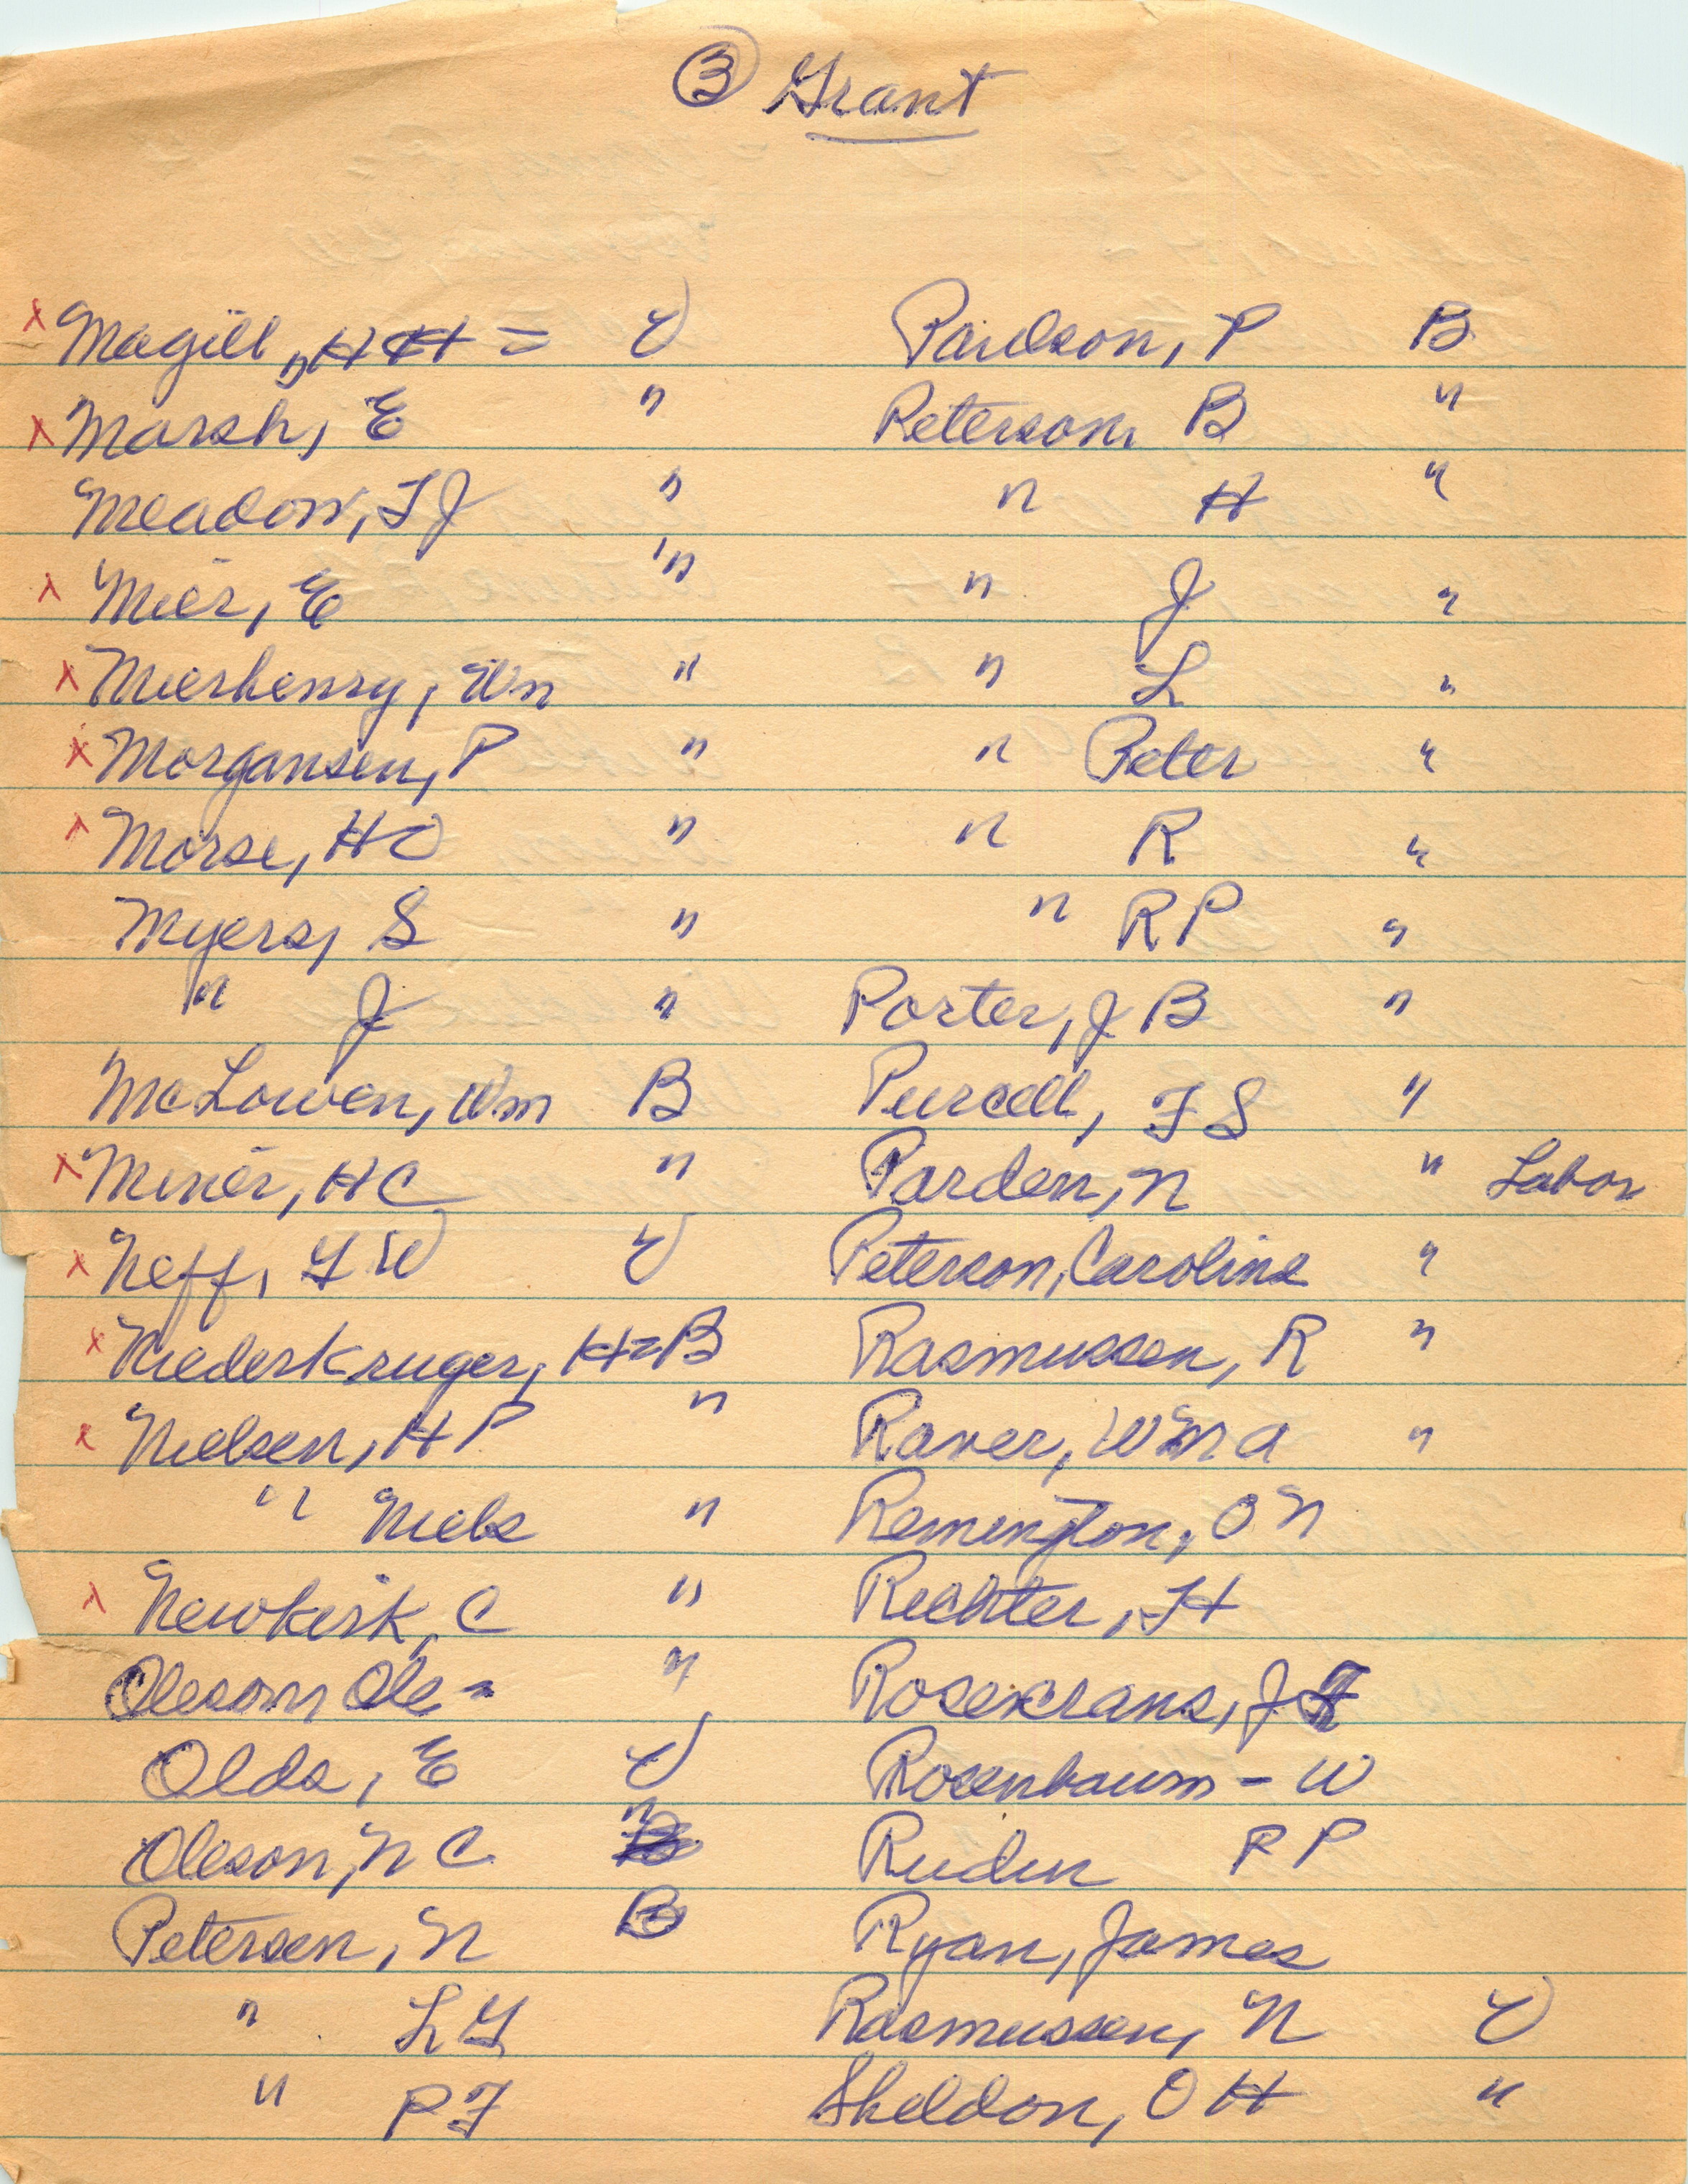 ③ Grant
x Magill, HH = V
x Marsh, E "
Meadow, F J "
x Mier, E "
x Mierhenry, Wm "
x Morgansen, P "
x Morse, HO "
Myers, S "
" J "
McLowen, Wm B
x Miner, HC "
x Neff, G W V
x Niederkruger, H = B
x Nielsen, H P "
" Niels "
x Newkirk, C "
Oleson, Ole - "
Olds, E V
Oleson, N C "
Petersen, N B
" L G
" P F
Paulson, P B
Peterson, B "
" H "
" J "
" L "
" Peter "
" R "
" R P "
Porter, J B "
Purcell, F S "
Parden, N " Labor
Peterson, Caroline "
Rasmussen, R "
Raver, Wm A "
Remington, O N
Richter, F H
Rosekrans, J F
Rosenbaum - W
Rudin R P
Ryan, James
Rasmussen, N V
Sheldon, O H "